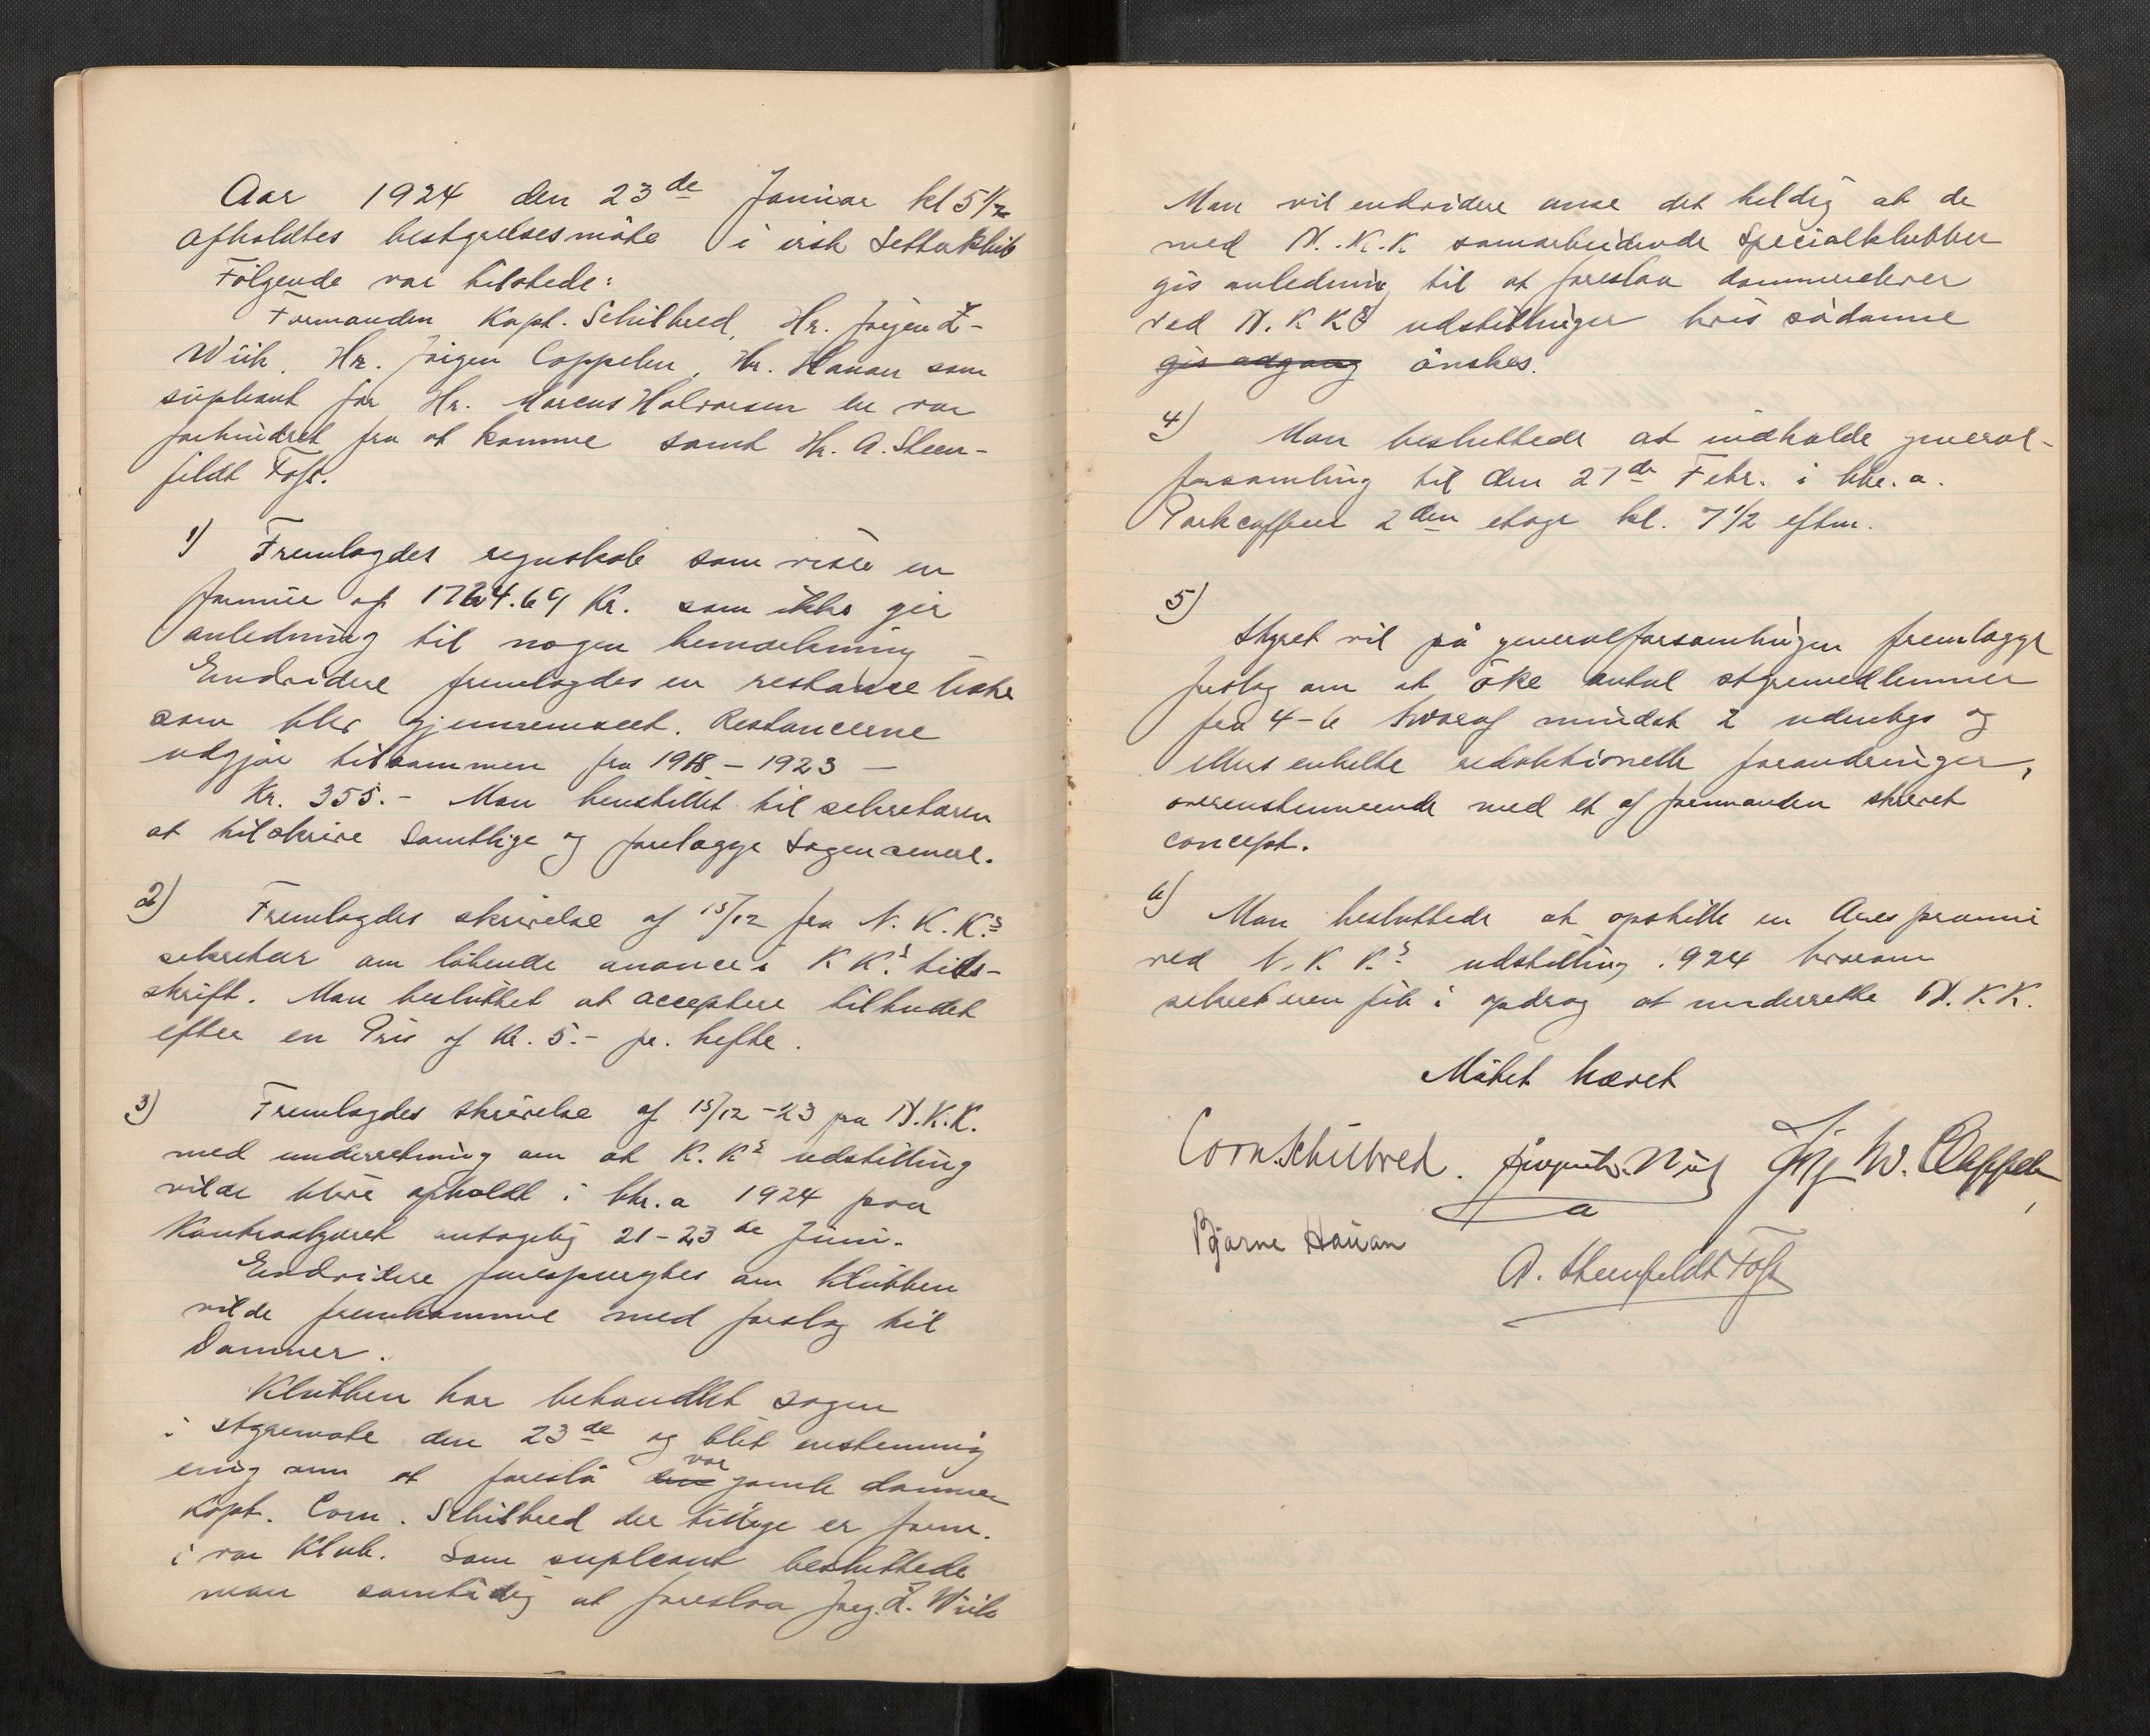 Aar 1924 den 23de Januar kl 5 1/2
afholdtes bestyrelsesmöte i irsk Setterklub
Følgende var tilstede:
Formanden Kapt. Schilbred, Hr. Jørgen Z-
Wiik. Hr. Jörgen Cappelen, Hr. Hauan som
supleant for Hr. Marcus Halvorsen der var
forhindret fra at komme samt Hr. A. Steen-
feldt Foss.
1) Fremlagdes regnskab som viste en
formue af Kr. som ikke gir
anledning til nogen bemærkning –
Endvidere fremlagdes en restance liste
som blev gjennemseet. Restancerne
udgjør tilsammen fra 1918 – 1923 –
Kr. 355.- Man henstillet til sekretæren
at tilskrive samtlige og forelægge sagen senere.
2) Fremlagdes skrivelse af 15/12 fra N. K. K.s
sekretær om løbende anonce i K K.s tids-
skrift. Man besluttet at acceptere tilbudet
efter en Pris af Kr. 5.- pr. hefte.
3) Fremlagdes skrivelse af 15/12 -23 fra N.K.K.
med underretning om at K. Ks udstilling
vilde blive afholdt i Khr.a 1924 paa
Kontraskjæret antagelig 21-23de Juni.
Endvidere forespurgtes om Klubben
vilde fremkomme med forslag til
Dommer.
Klubben har behandlet sagen
i styremøte den 23de og blit enstemmig
enig om at foreslå vor gamle dommer
Kapt. Corn. Schilbred der tillige er form.
i vor Klub. Som supleant besluttede
man samtidig at foreslaa Jørg. Z. Wiik
Man vil endvidere anse det heldig at de
med N. K. K samarbeidende Specialklubber
gis anledning til at foreslaa dommerelever
ved N. K Ks udstillinger hvis sådanne
gis adgang önskes.
4) Man besluttede at indkalde general-
forsamling til den 27de Febr. i Khr. a.
Parkcaffeen 2den etage kl. 7 1/2 eftm.
5)
Styret vil på generalforsamlingen fremlægge
forslag om at öke antal styremedlemmer
fra 4-6 hvoraf mindst 2 udenbys og
ellers enkelte redaktionelle forandringer,
overensstemmende med et af formanden skrevet
concept.
6) Man besluttede at opstille en Æres præmi
ved N. K K.s udstilling 1924 hvorom
sekretæren fik i opdrag at underrette N. K K.
Mötet hævet
Corn. Schilbred. Jørgen Z. Wiik Jørg W. Cappelen
Bjarne Hauan
A. Steenfeldt Foss